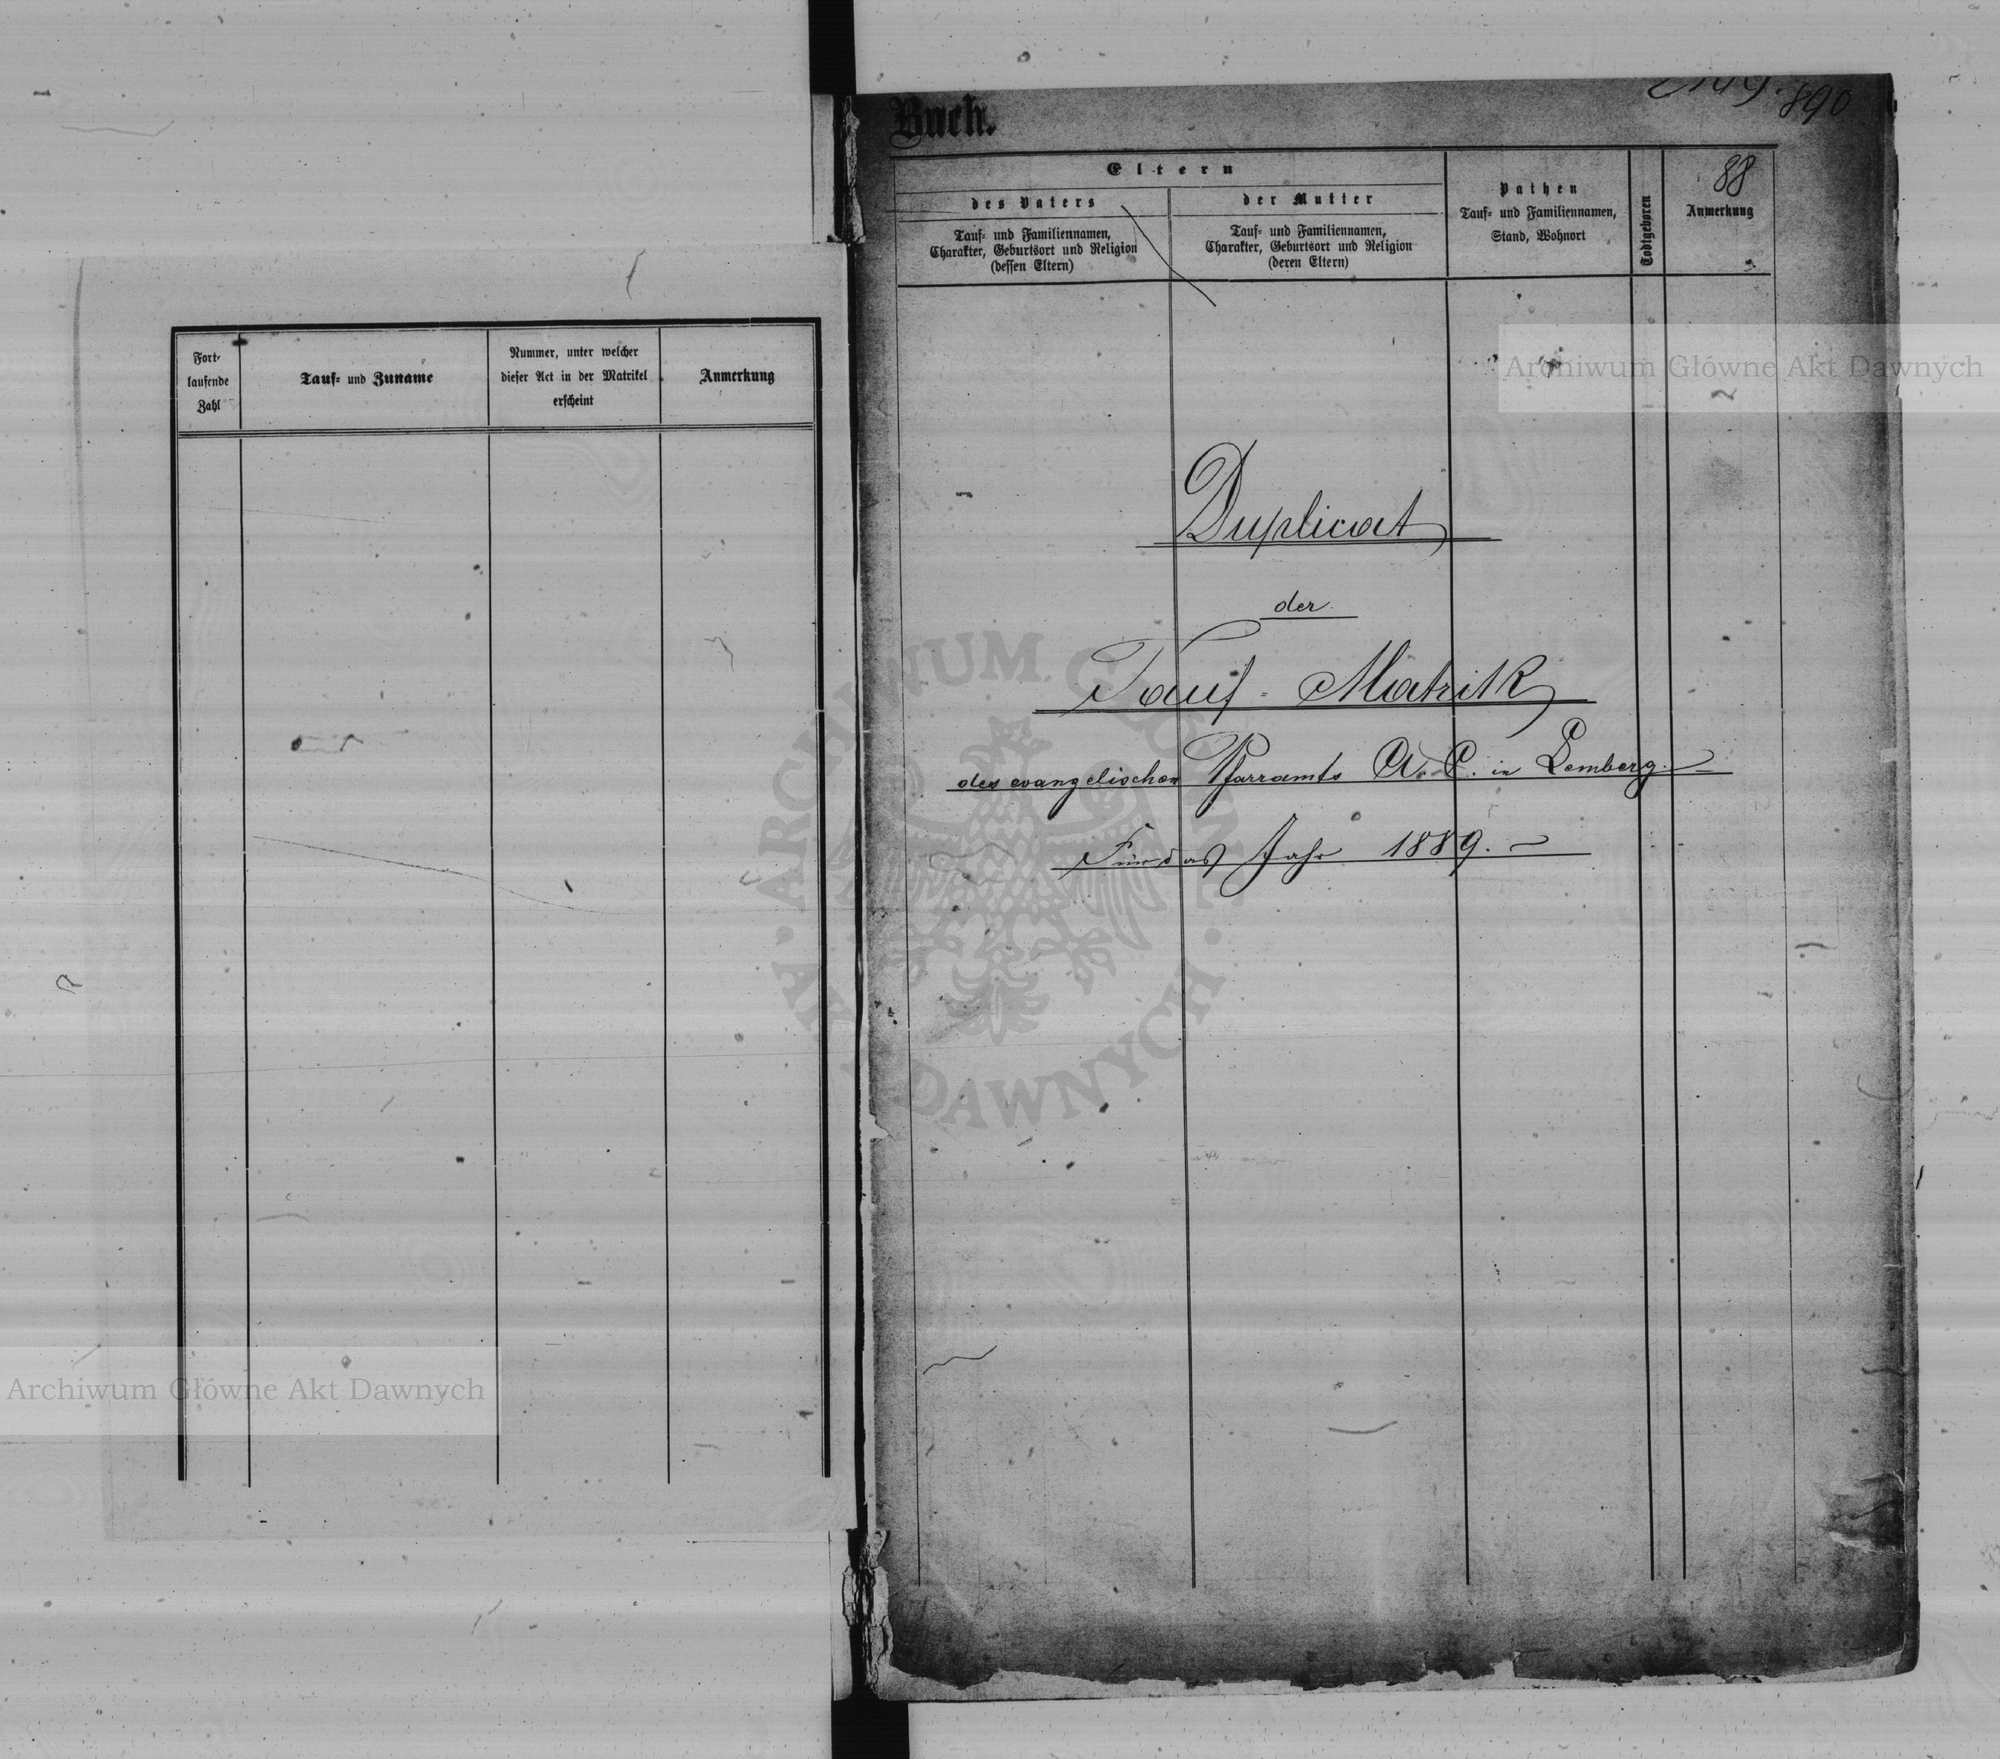 Fort-
laufende
Zahl
Tauf- und Zuname
Nummer, unter welcher
dieser Act in der Matrikel
erscheint
Anmerkung
Buch.
890
Eltern
des Vaters
Tauf- und Familiennamen,
Charakter, Geburtsort und Religion
(dessen Eltern)
der Mutter
Tauf- und Familiennamen,
Charakter, Geburtsort und Religion
(deren Eltern)
Pathen
Tauf- und Familiennamen,
Stand, Wohnort
Todtgeboren
88
Anmerkung
Duplicat
der
Tauf-Matrik
des evangelischen Pfarramts A. C. in Lemberg.
Für das Jahr 1889.
Archiwum Główne Akt Dawnych
ARCHIWUM GŁÓWNE · AKT DAWNYCH ·
Archiwum Główne Akt Dawnych